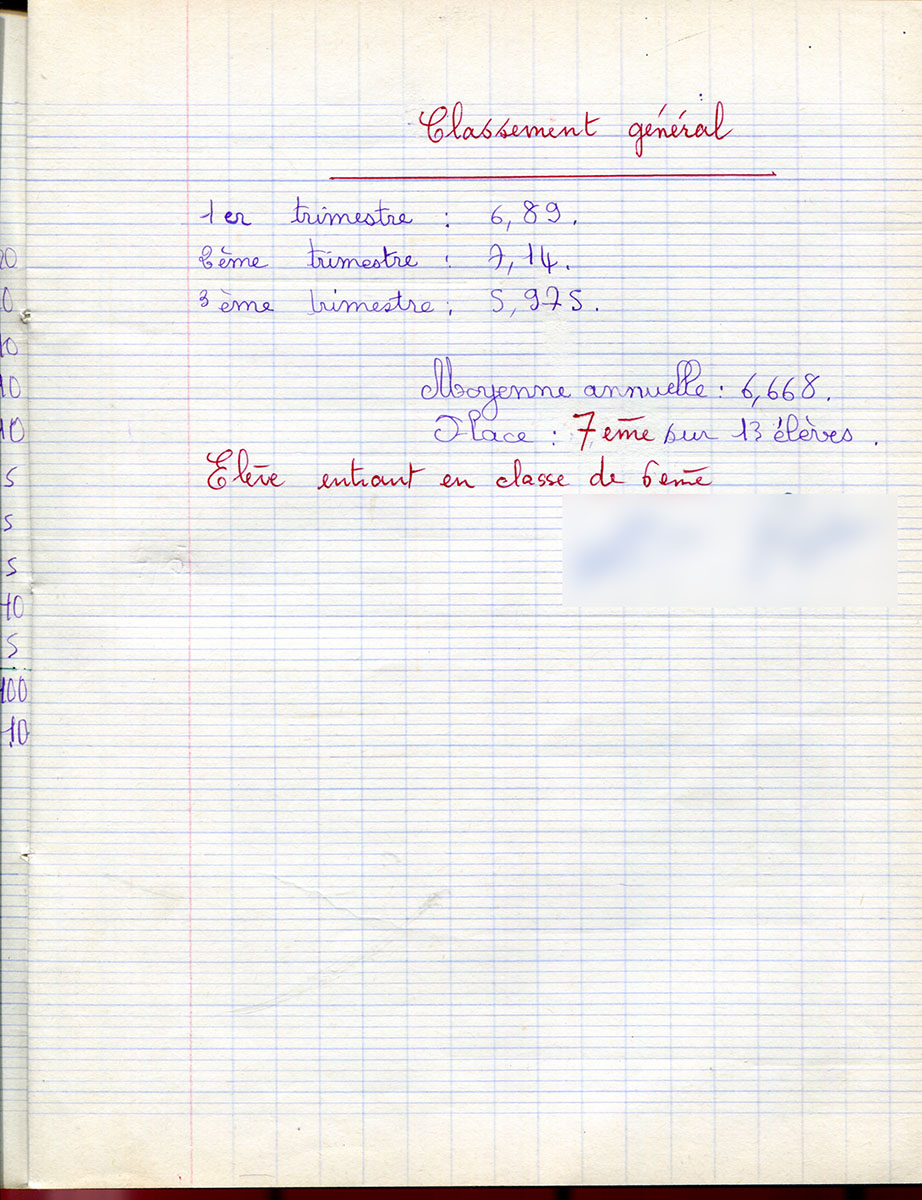 Classement général
1er trimestre : 6,89.
2ème trimestre : 7,14.
3ème trimestre : 5,975.
Moyenne annuelle : 6,668.
Place : 7eme sur 13 élèves.
Elève entrant en classe de 6eme
10
5
5
5
10
5
100
10